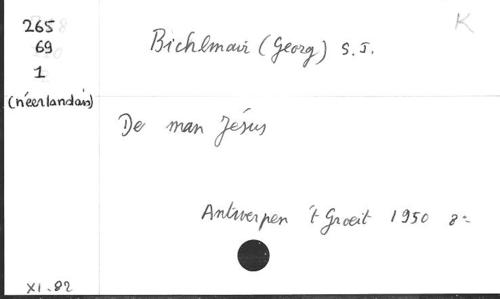 265
69
1
(néerlandais)
K
Bichlmair (Georg) S.J.
De man Jésus
Antwerpen 't Groeit 1950 8=
XI.82